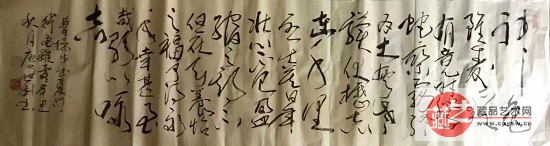 神龟
雖壽
猶有竟時騰
蛇乘霧終
为土灰老
骥伏櫪志
在千里
烈士暮年
壮心不已盈
缩之期不
但在天养怡
之福可得永
年幸甚至
哉歌以咏
志
曹操步出夏门
行龟雖壽
秋月
藏品艺术网